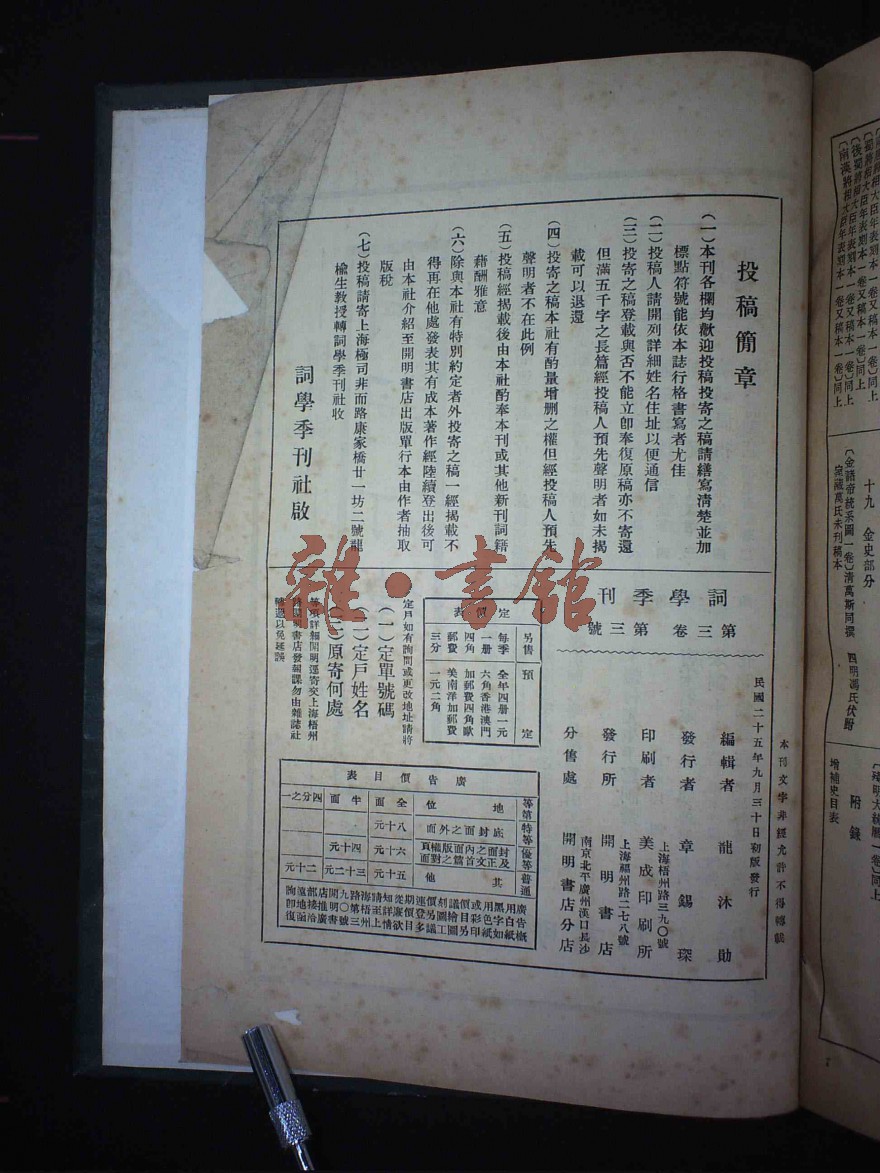 投稿簡章
(一)本刊各欄均歡迎投稿投寄之稿請繕寫清楚並加
標點符號能依本誌行格書寫者尤佳
(二)投稿人請開列詳細姓名住址以便通信
(三)投寄之稿登載與否不能立卽奉復原稿亦不寄還
但滿五千字之長篇經投稿人預先聲明者如未揭
載可以退還
(四)投寄之稿本社有酌量增删之權但經投稿人預先
聲明者不在此例
(五)投稿經揭載後由本社酌奉本刊或其他新刊詞籍
藉酬雅意
(六)除與本社有特別約定者外投寄之稿一經揭載不
得再在他處發表其有成本著作經陸續登出後可
由本社介紹至開明書店出版單行本由作者抽取
版稅
(七)投稿請寄上海極司非而路康家橋廿一坊二號龍
榆生教授轉詞學季刊社收
詞學季刊社啟
本刊文字非經允許不得轉載
民國二十五年九月三十日初版發行
詞學季刊
第三卷第三號
編輯者 龍沐勛
發行者 章錫琛
上海梧州路三九〇號
印刷者 美成印刷所
上海福州路二七八號
發行所 開明書店
南京北平廣州漢口長沙
分售處 開明書店分店
定價表
另售 預定
每季一册四角郵費三分
全年四册一元六角香港澳門加郵費四角歐美南洋加郵費一元二角
定戶如有詢問或更改地址請將
(一)定單號碼
(二)定戶姓名
(三)原寄何處
等項詳細開明逕寄交上海梧州
路開明書店發報課勿由雜誌社
轉遞以免延誤
廣告價目表
地位 全面 半面 四分之一
特等 底封面之外面 八十元
優等 六十元 四十元
普通 其他 五十元 三十二元 二十元
雜·書館
十九 金史部分
〔金諸帝統系圖一卷〕清萬斯同撰 四明馮氏伏跗
室藏萬氏未刊稿本
附錄
增補史目表
7